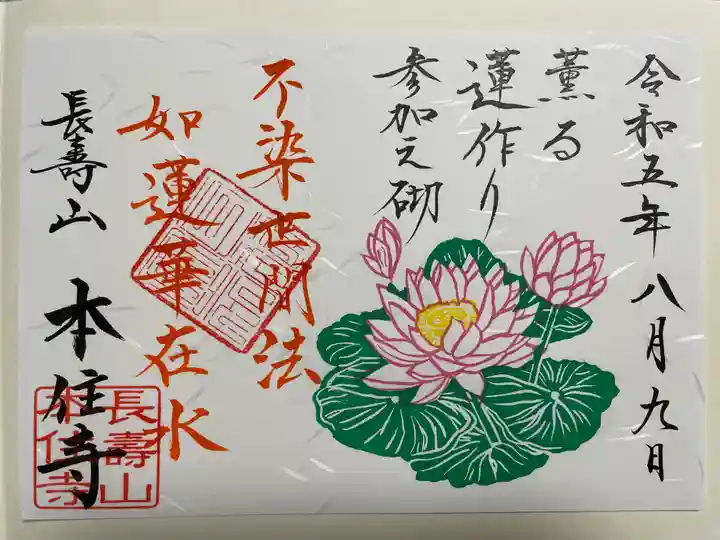 令和五年 八月九日
薫る
蓮作り
参加之砌
不染世間法
如蓮華在水
長壽山 本住寺
長壽山
本住寺